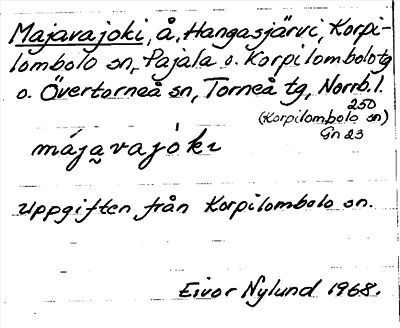 Majavajoki, å, Hangasjärvi, Korpi-
lombolo sn, Pajala o. Korpilombolo tg
o. Övertorneå sn, Torneå tg, Norrb. l.
250
(Korpilombolo sn)
Gn 23
májavajóki
Uppgiften från Korpilombolo sn.
Eivor Nylund 1968.